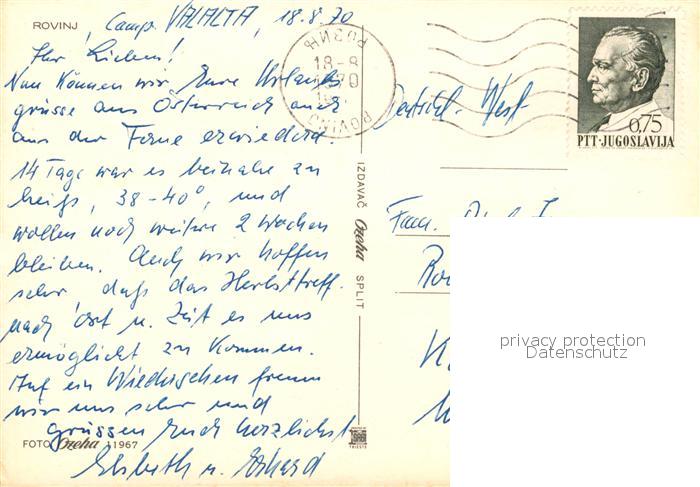 ROVINJ
, Camp VALALTA, 18.8.70
Ihr Lieben!
Nun können wir Eure Urlaubs
grüsse aus Österreich auch
aus der Ferne erwiedern.
14 Tage war es beinahe zu
heiß, 38-40°, und
wollen noch weitere 2 Wochen
bleiben. Auch wir hoffen
sehr, daß das Herbsttreff.
nach Ort u. Zeit es uns
ermöglicht zu kommen.
Auf ein Wiedersehen freuen
wir uns sehr und
grüssen Euch herzlichst
Elsbeth u. Erhard
FOTO Ozeha 11967
IZDAVAČ Ozeha SPLIT
РОВИЊ
18-8
1970
ROVINJ
0,75
PTT-JUGOSLAVIJA
Deutschl. West
Fam.
privacy protection
Datenschutz